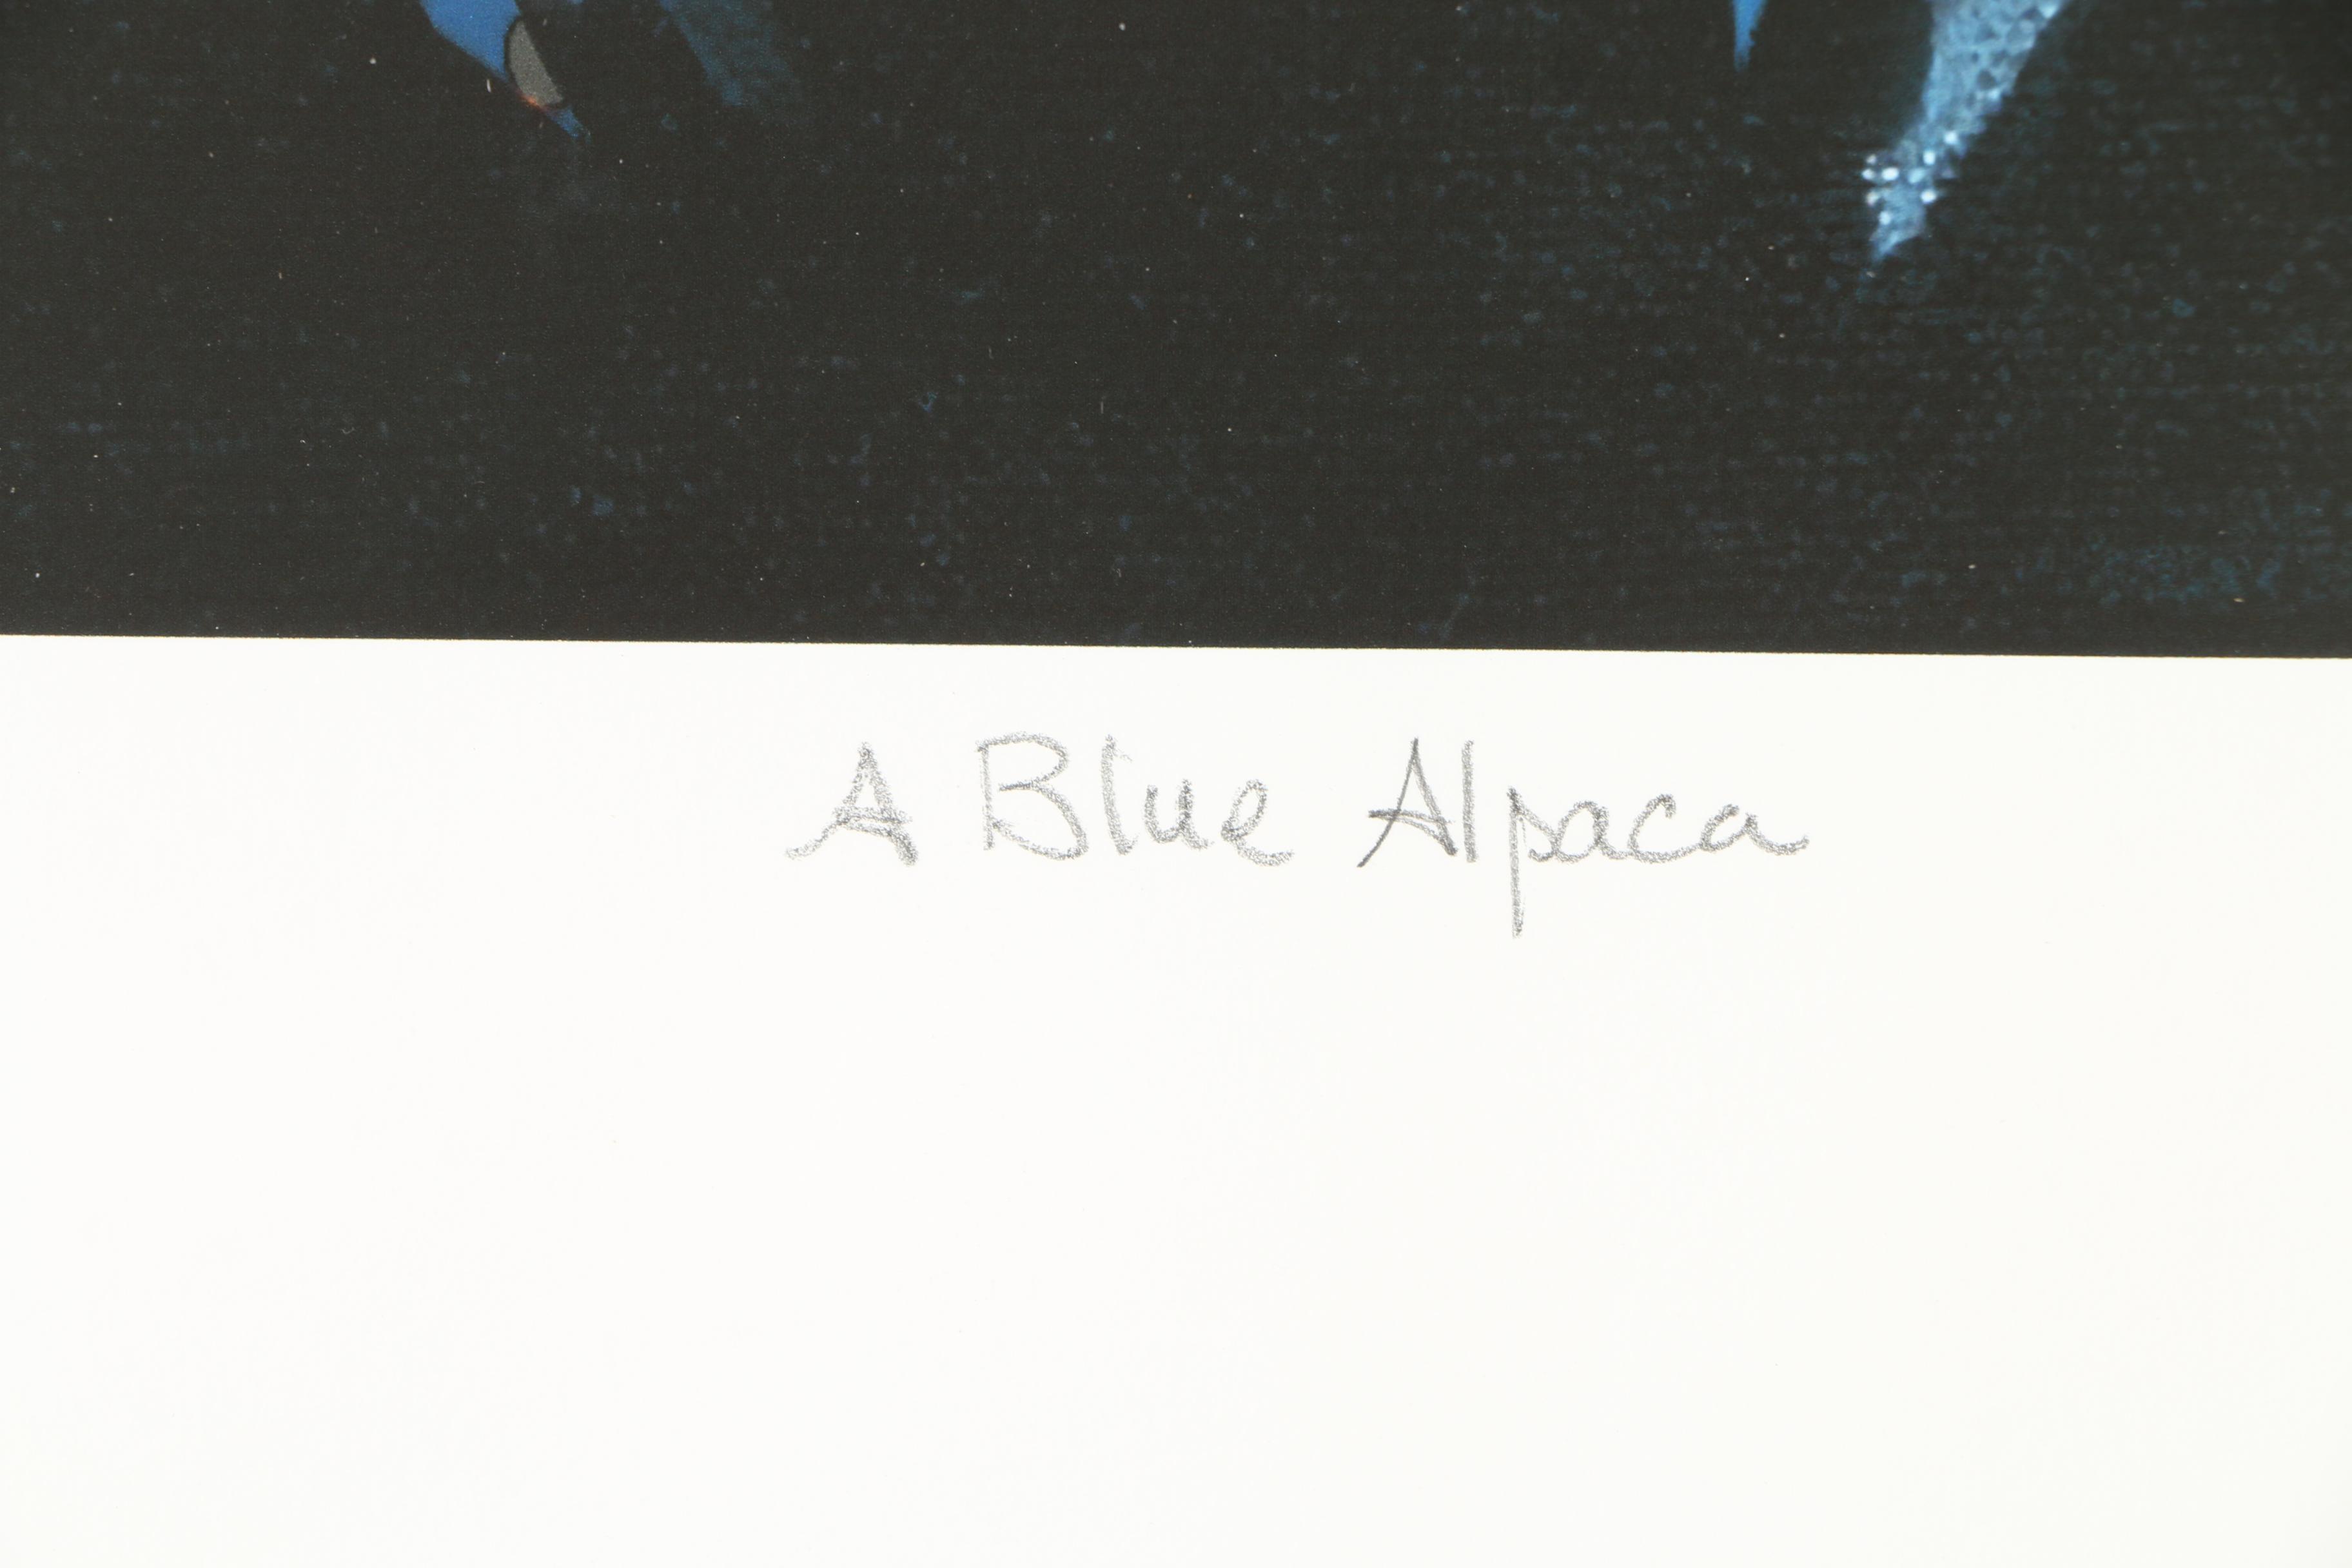 A Blue Alpaca